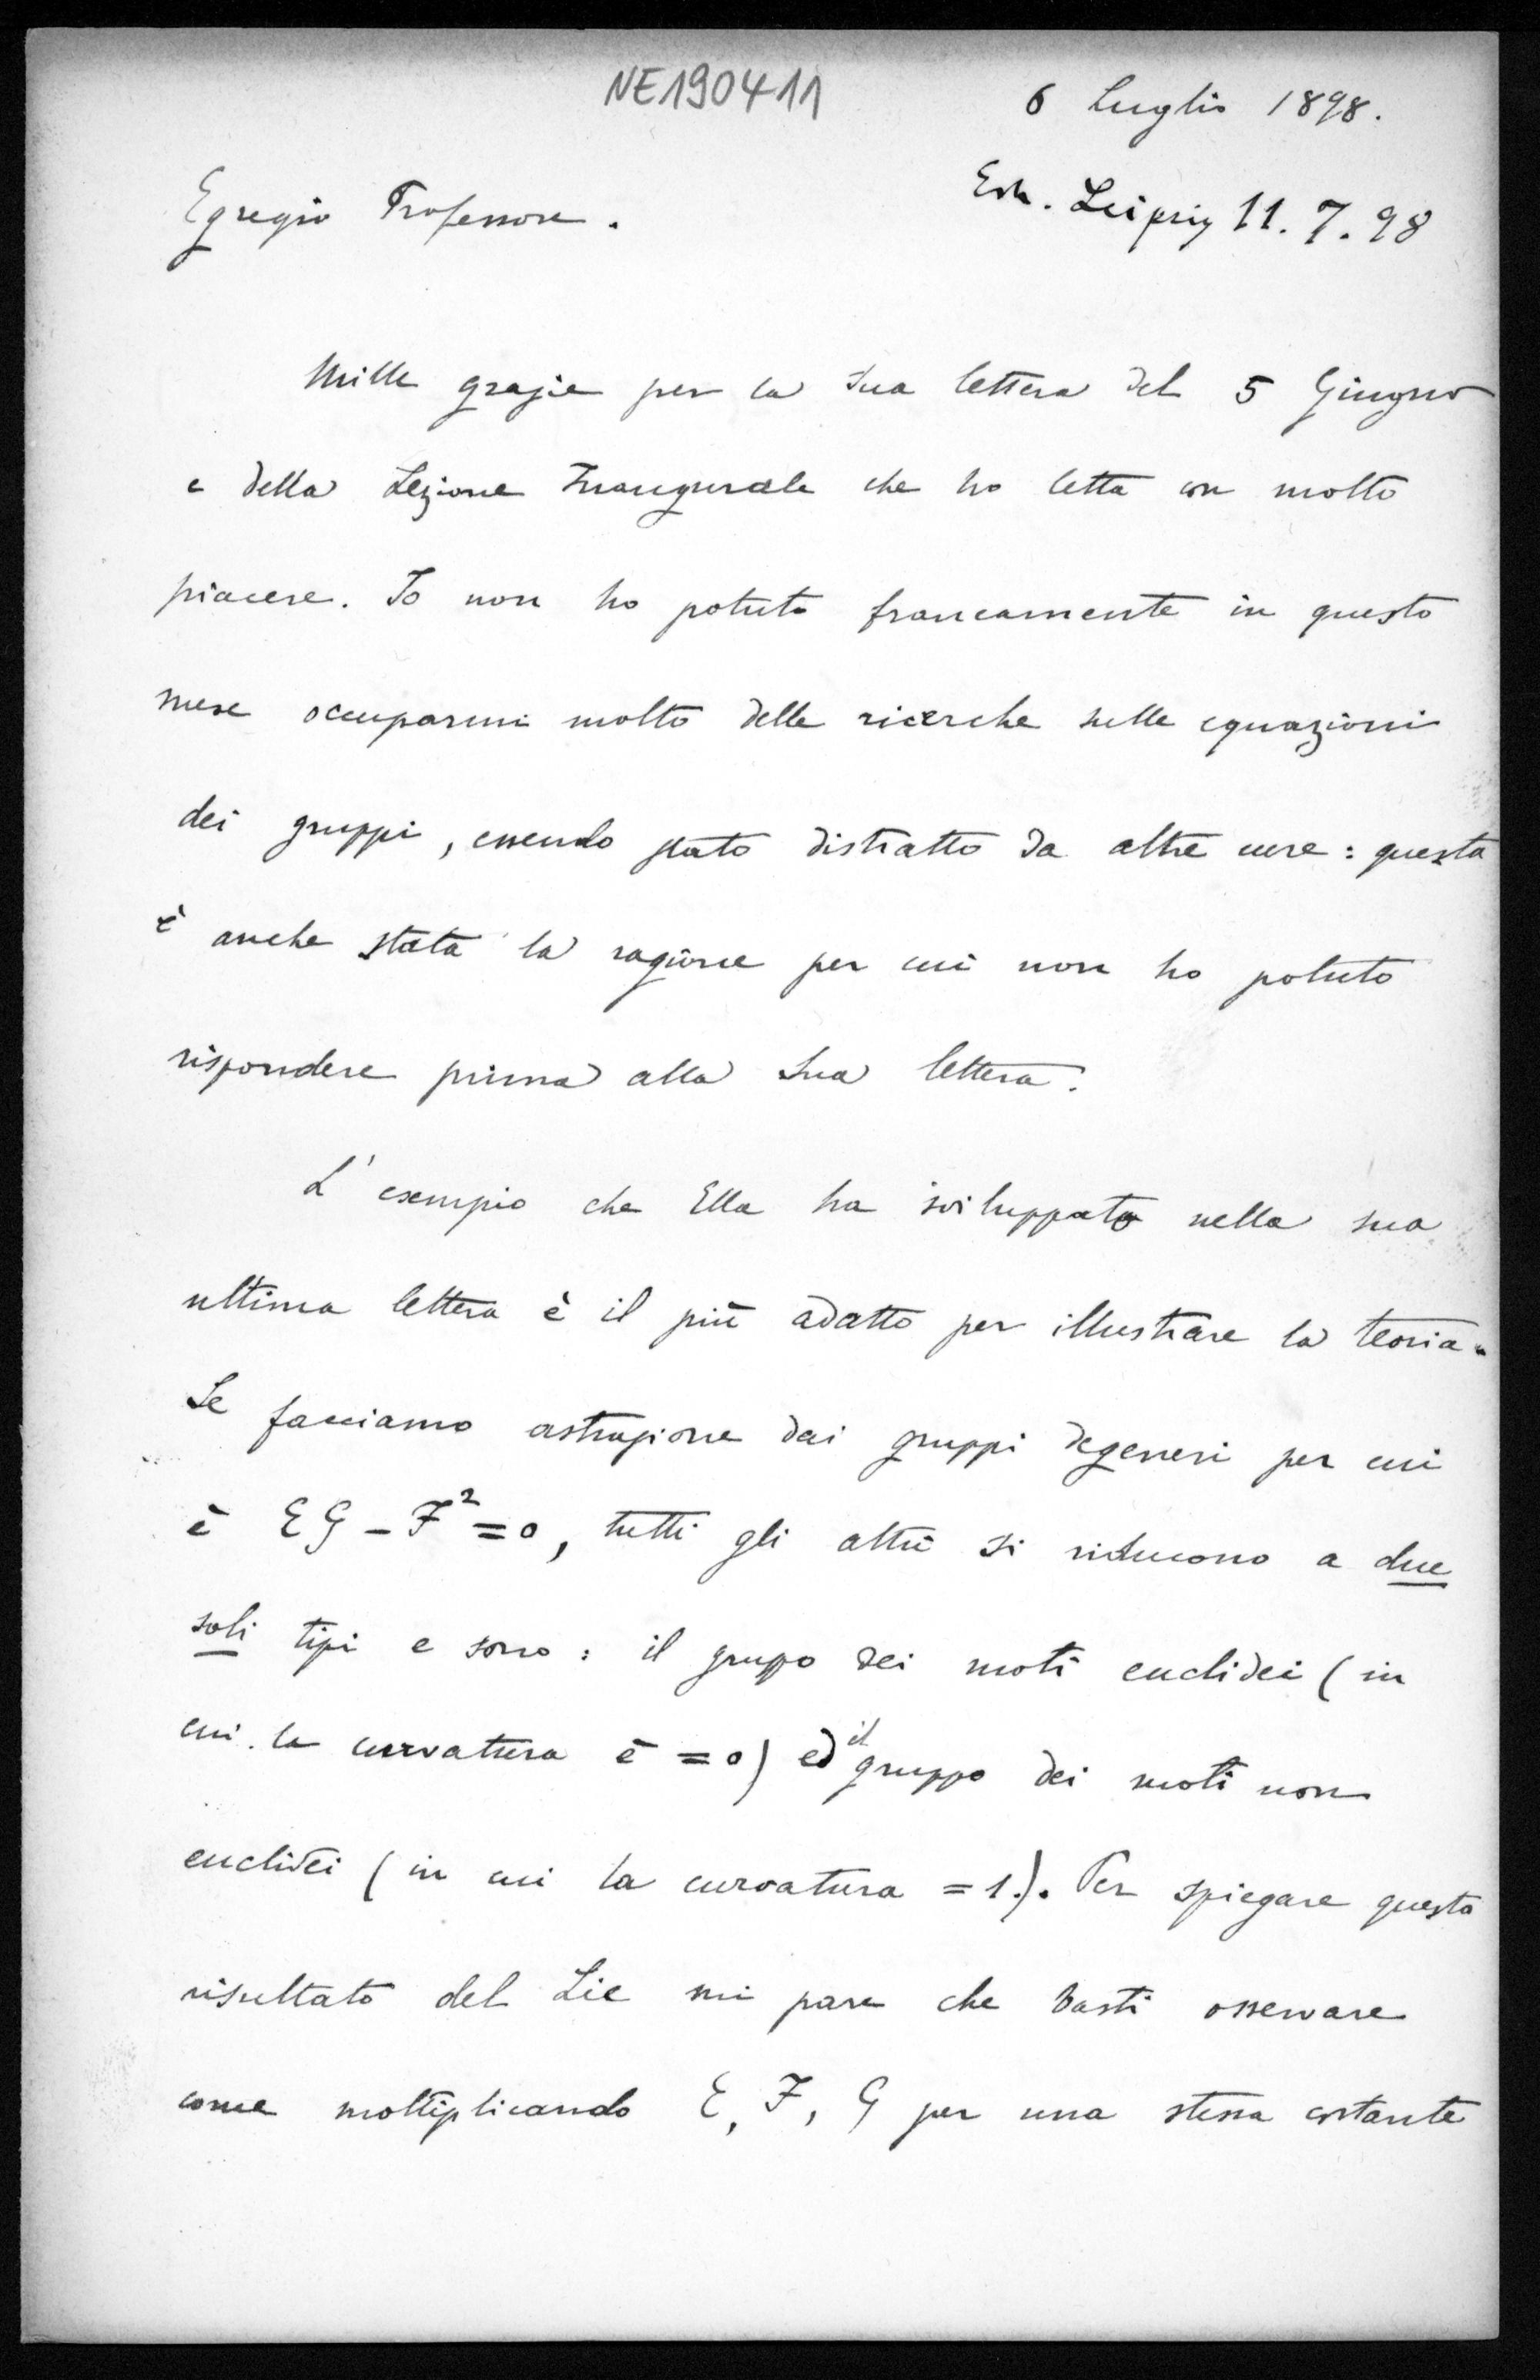 NE190411
6 Luglio 1898.
Erh. Leipzig 11. 7. 98
Egregio Professore.
Mille grazie per la Sua lettera del 5 Giugno
e della Lezione Inaugurale che ho letta con molto
piacere. Io non ho potuto francamente in questo
mese occuparmi molto delle ricerche sulle equazioni
dei gruppi, essendo stato distratto da altre cure: questa
è anche stata la ragione per cui non ho potuto
rispondere prima alla Sua lettera.
L'esempio che Ella ha sviluppato nella sua
ultima lettera è il più adatto per illustrare la teoria.
Se facciamo astrazione dai gruppi degeneri per cui
è EG - F² = 0, tutti gli altri si riducono a due
soli tipi e sono: il gruppo dei moti euclidei (in
cui la curvatura è = 0) ed il gruppo dei moti non
euclidei (in cui la curvatura = 1). Per spiegare questo
risultato del Lie mi pare che basti osservare
come moltiplicando E, F, G per una stessa costante